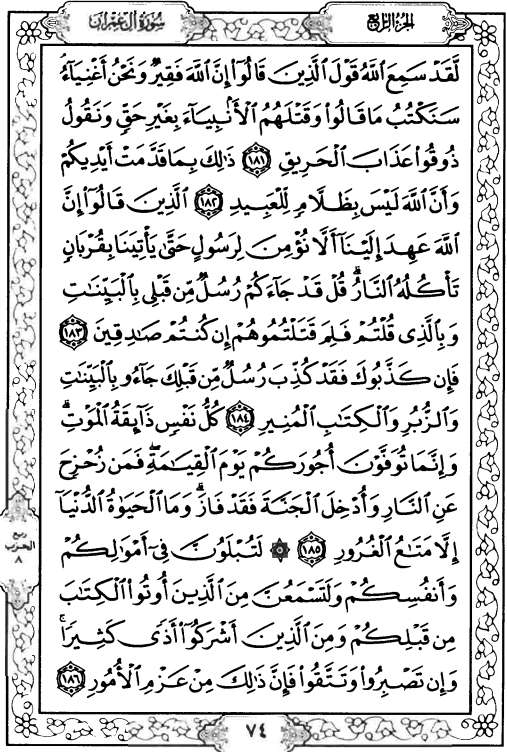 الجزء الرابع
سورة آل عمران
لَّقَدْ سَمِعَ ٱللَّهُ قَوْلَ ٱلَّذِينَ قَالُوٓا۟ إِنَّ ٱللَّهَ فَقِيرٌ وَنَحْنُ أَغْنِيَآءُ
سَنَكْتُبُ مَا قَالُوا۟ وَقَتْلَهُمُ ٱلْأَنۢبِيَآءَ بِغَيْرِ حَقٍّ وَنَقُولُ
ذُوقُوا۟ عَذَابَ ٱلْحَرِيقِ ١٨١ ذَٰلِكَ بِمَا قَدَّمَتْ أَيْدِيكُمْ
وَأَنَّ ٱللَّهَ لَيْسَ بِظَلَّامٍ لِّلْعَبِيدِ ١٨٢ ٱلَّذِينَ قَالُوٓا۟ إِنَّ
ٱللَّهَ عَهِدَ إِلَيْنَآ أَلَّا نُؤْمِنَ لِرَسُولٍ حَتَّىٰ يَأْتِيَنَا بِقُرْبَانٍ
تَأْكُلُهُ ٱلنَّارُ ۗ قُلْ قَدْ جَآءَكُمْ رُسُلٌ مِّن قَبْلِى بِٱلْبَيِّنَٰتِ
وَبِٱلَّذِى قُلْتُمْ فَلِمَ قَتَلْتُمُوهُمْ إِن كُنتُمْ صَٰدِقِينَ ١٨٣
فَإِن كَذَّبُوكَ فَقَدْ كُذِّبَ رُسُلٌ مِّن قَبْلِكَ جَآءُو بِٱلْبَيِّنَٰتِ
وَٱلزُّبُرِ وَٱلْكِتَٰبِ ٱلْمُنِيرِ ١٨٤ كُلُّ نَفْسٍ ذَآئِقَةُ ٱلْمَوْتِ ۗ
وَإِنَّمَا تُوَفَّوْنَ أُجُورَكُمْ يَوْمَ ٱلْقِيَٰمَةِ ۖ فَمَن زُحْزِحَ
عَنِ ٱلنَّارِ وَأُدْخِلَ ٱلْجَنَّةَ فَقَدْ فَازَ ۗ وَمَا ٱلْحَيَوٰةُ ٱلدُّنْيَآ
إِلَّا مَتَٰعُ ٱلْغُرُورِ ١٨٥ ۞ لَتُبْلَوُنَّ فِىٓ أَمْوَٰلِكُمْ
وَأَنفُسِكُمْ وَلَتَسْمَعُنَّ مِنَ ٱلَّذِينَ أُوتُوا۟ ٱلْكِتَٰبَ
مِن قَبْلِكُمْ وَمِنَ ٱلَّذِينَ أَشْرَكُوٓا۟ أَذًى كَثِيرًا ۚ
وَإِن تَصْبِرُوا۟ وَتَتَّقُوا۟ فَإِنَّ ذَٰلِكَ مِنْ عَزْمِ ٱلْأُمُورِ ١٨٦
ربع
الحزب
٨
٧٤